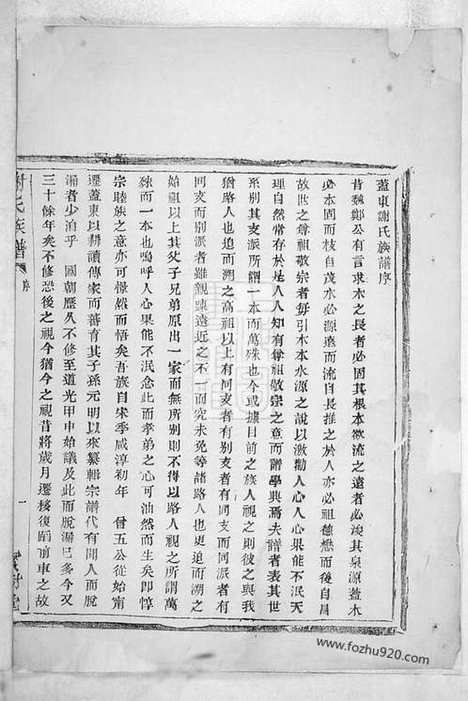 蓋東謝氏族譜序
昔魏鄭公有言求木之長者必固其根本欲流之遠者必浚其泉源蓋木
必本固而枝自茂水必源遠而流自長推之於人亦必祖德懋而後自昌
故世之尊祖敬宗者毎引木本水源之說以激勸人心人心果能不泯天
理自然常存於是人人知有尊祖敬宗之意而譜學興焉夫譜者表其世
系別其支派所謂一本而萬殊也今或據目前之族人視之則彼之與我
猶路人也追而溯之高祖以上有同支者有別支者有同支而同派有
同支而別派者雖親踈遠近之不一而究未免等諸路人也更追而溯之
始祖以上其父子兄弟原出一家而無所別則不得以路人視之所謂萬
殊而一本也嗚呼人心果能不泯念此而孝弟之心可油然而生矣即惇
宗睦族之意亦可恍而悟矣吾族自宋季咸淳初年 曾五公從始甯
遷蓋東以耕讀傳家而蕃育其子孫元明以來纂輯宗譜代有聞人而脫
漏者少泊乎 國朝歷久不修至道光甲申始議及此而脫漏已多今又
三十餘年矣不修恐後之視今猶今之視昔將歲月遷移復蹈前車之故
謝氏族譜
序
一
www.fozhu920.com